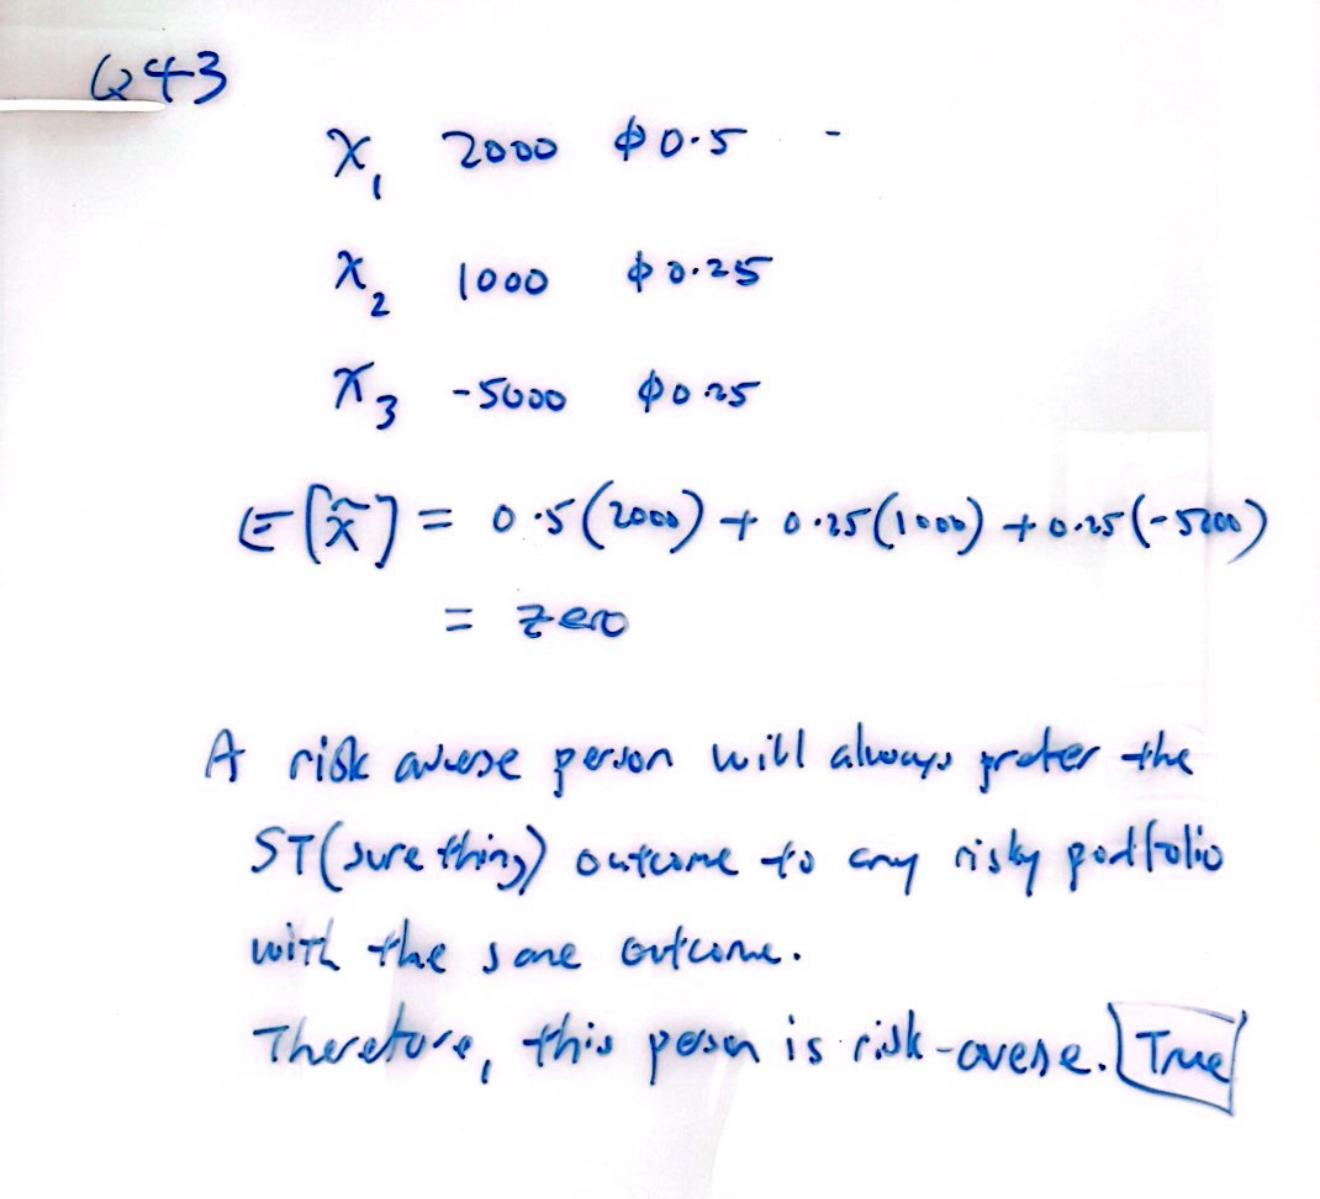 Q43
X₁ 2000 ϕ0.5 -
X₂ 1000 ϕ0.25
X₃ -5000 ϕ0.25
E[x̃] = 0.5(2000) + 0.25(1000) + 0.25(-5000)
= zero
A risk averse person will always prefer the
ST(sure thing) outcome to any risky portfolio
with the same outcome.
Therefore, this person is risk-averse. True